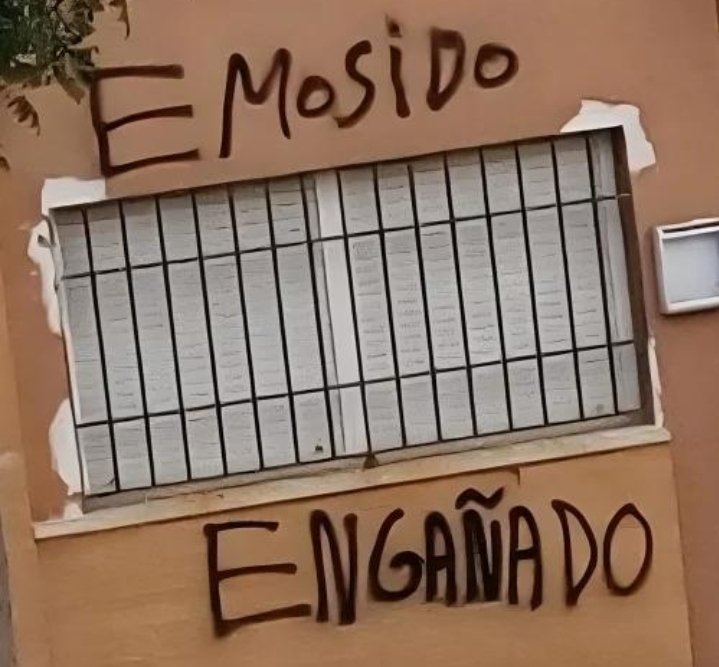 EMOSiDO
ENGAÑADO